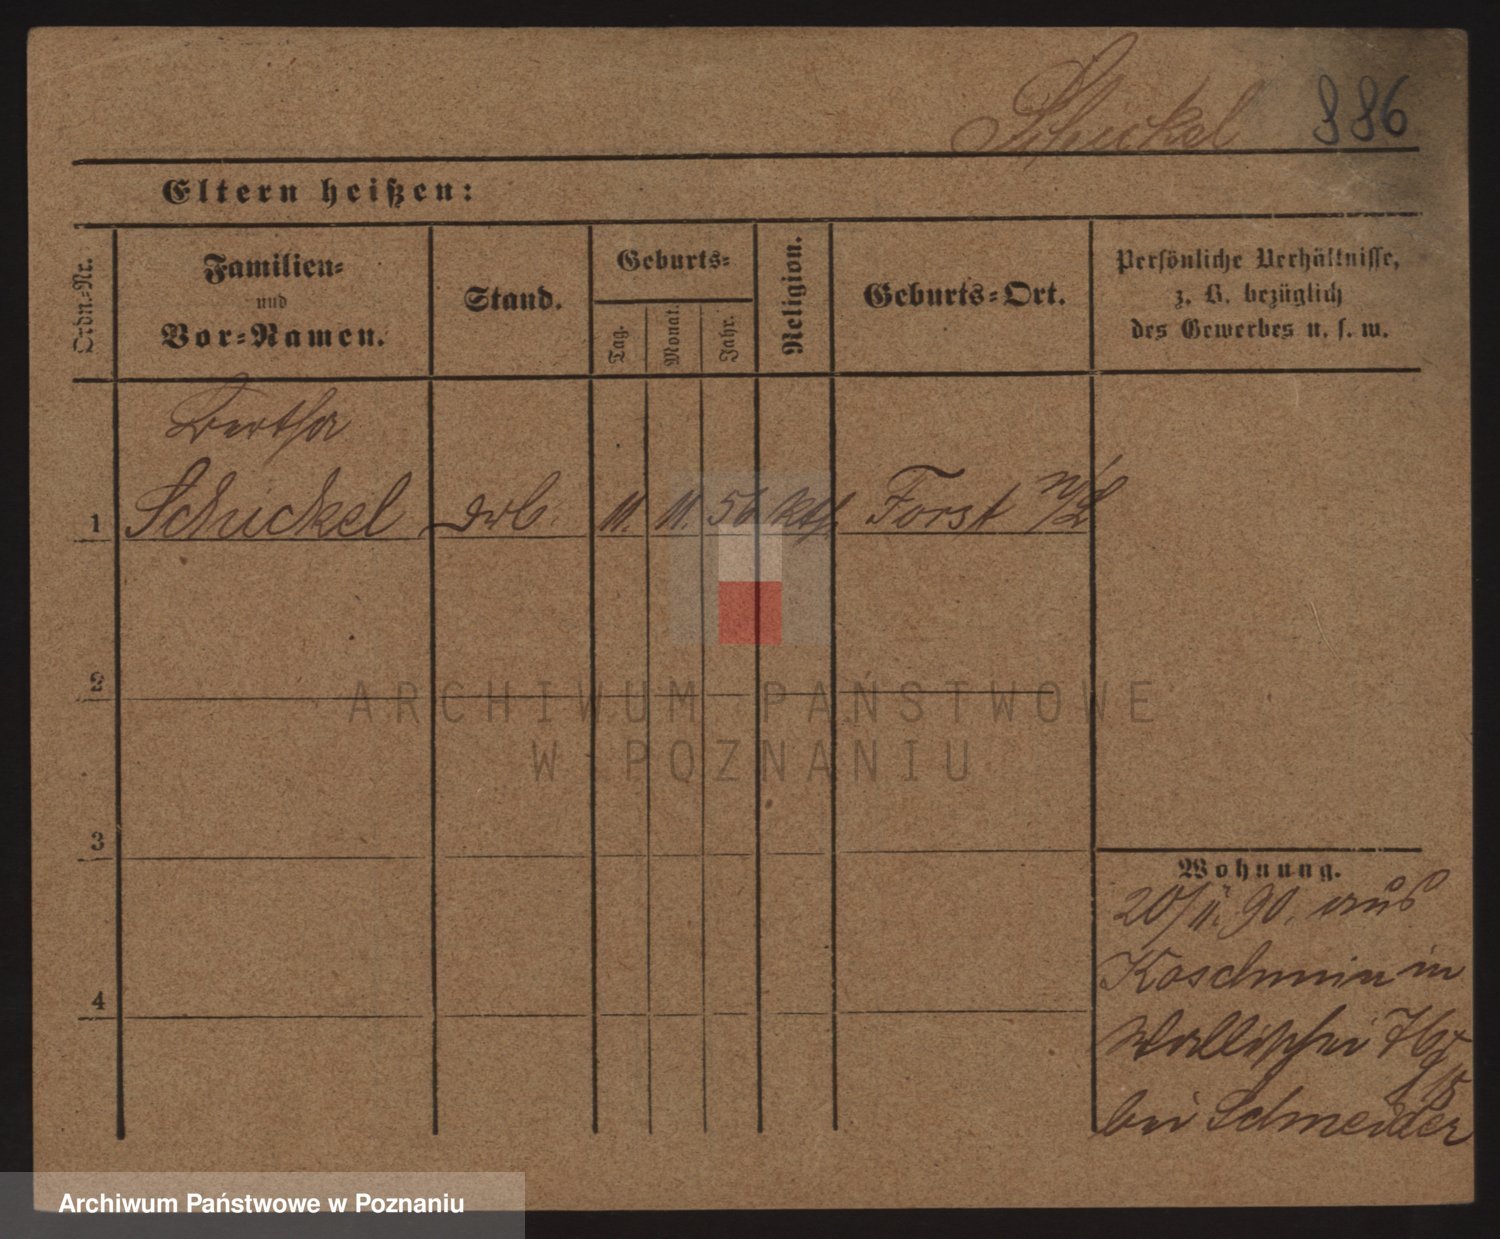 Schickel 886
Eltern heißen:
Ordn.-Nr.
Familien-
und
Vor-Namen.
Stand.
Geburts-
Tag.
Monat.
Jahr.
Religion.
Geburts-Ort.
Persönliche Verhältnisse,
z. B. bezüglich
des Gewerbes u. s. w.
Bertha
1 Schickel 11. 11. 56 kth. Forst N/L
2
3
4
Wohnung.
20/11. 90. aus
Koschmin in
Wallischei 76
bei Schmeider
ARCHIWUM PAŃSTWOWE
W POZNANIU
Archiwum Państwowe w Poznaniu